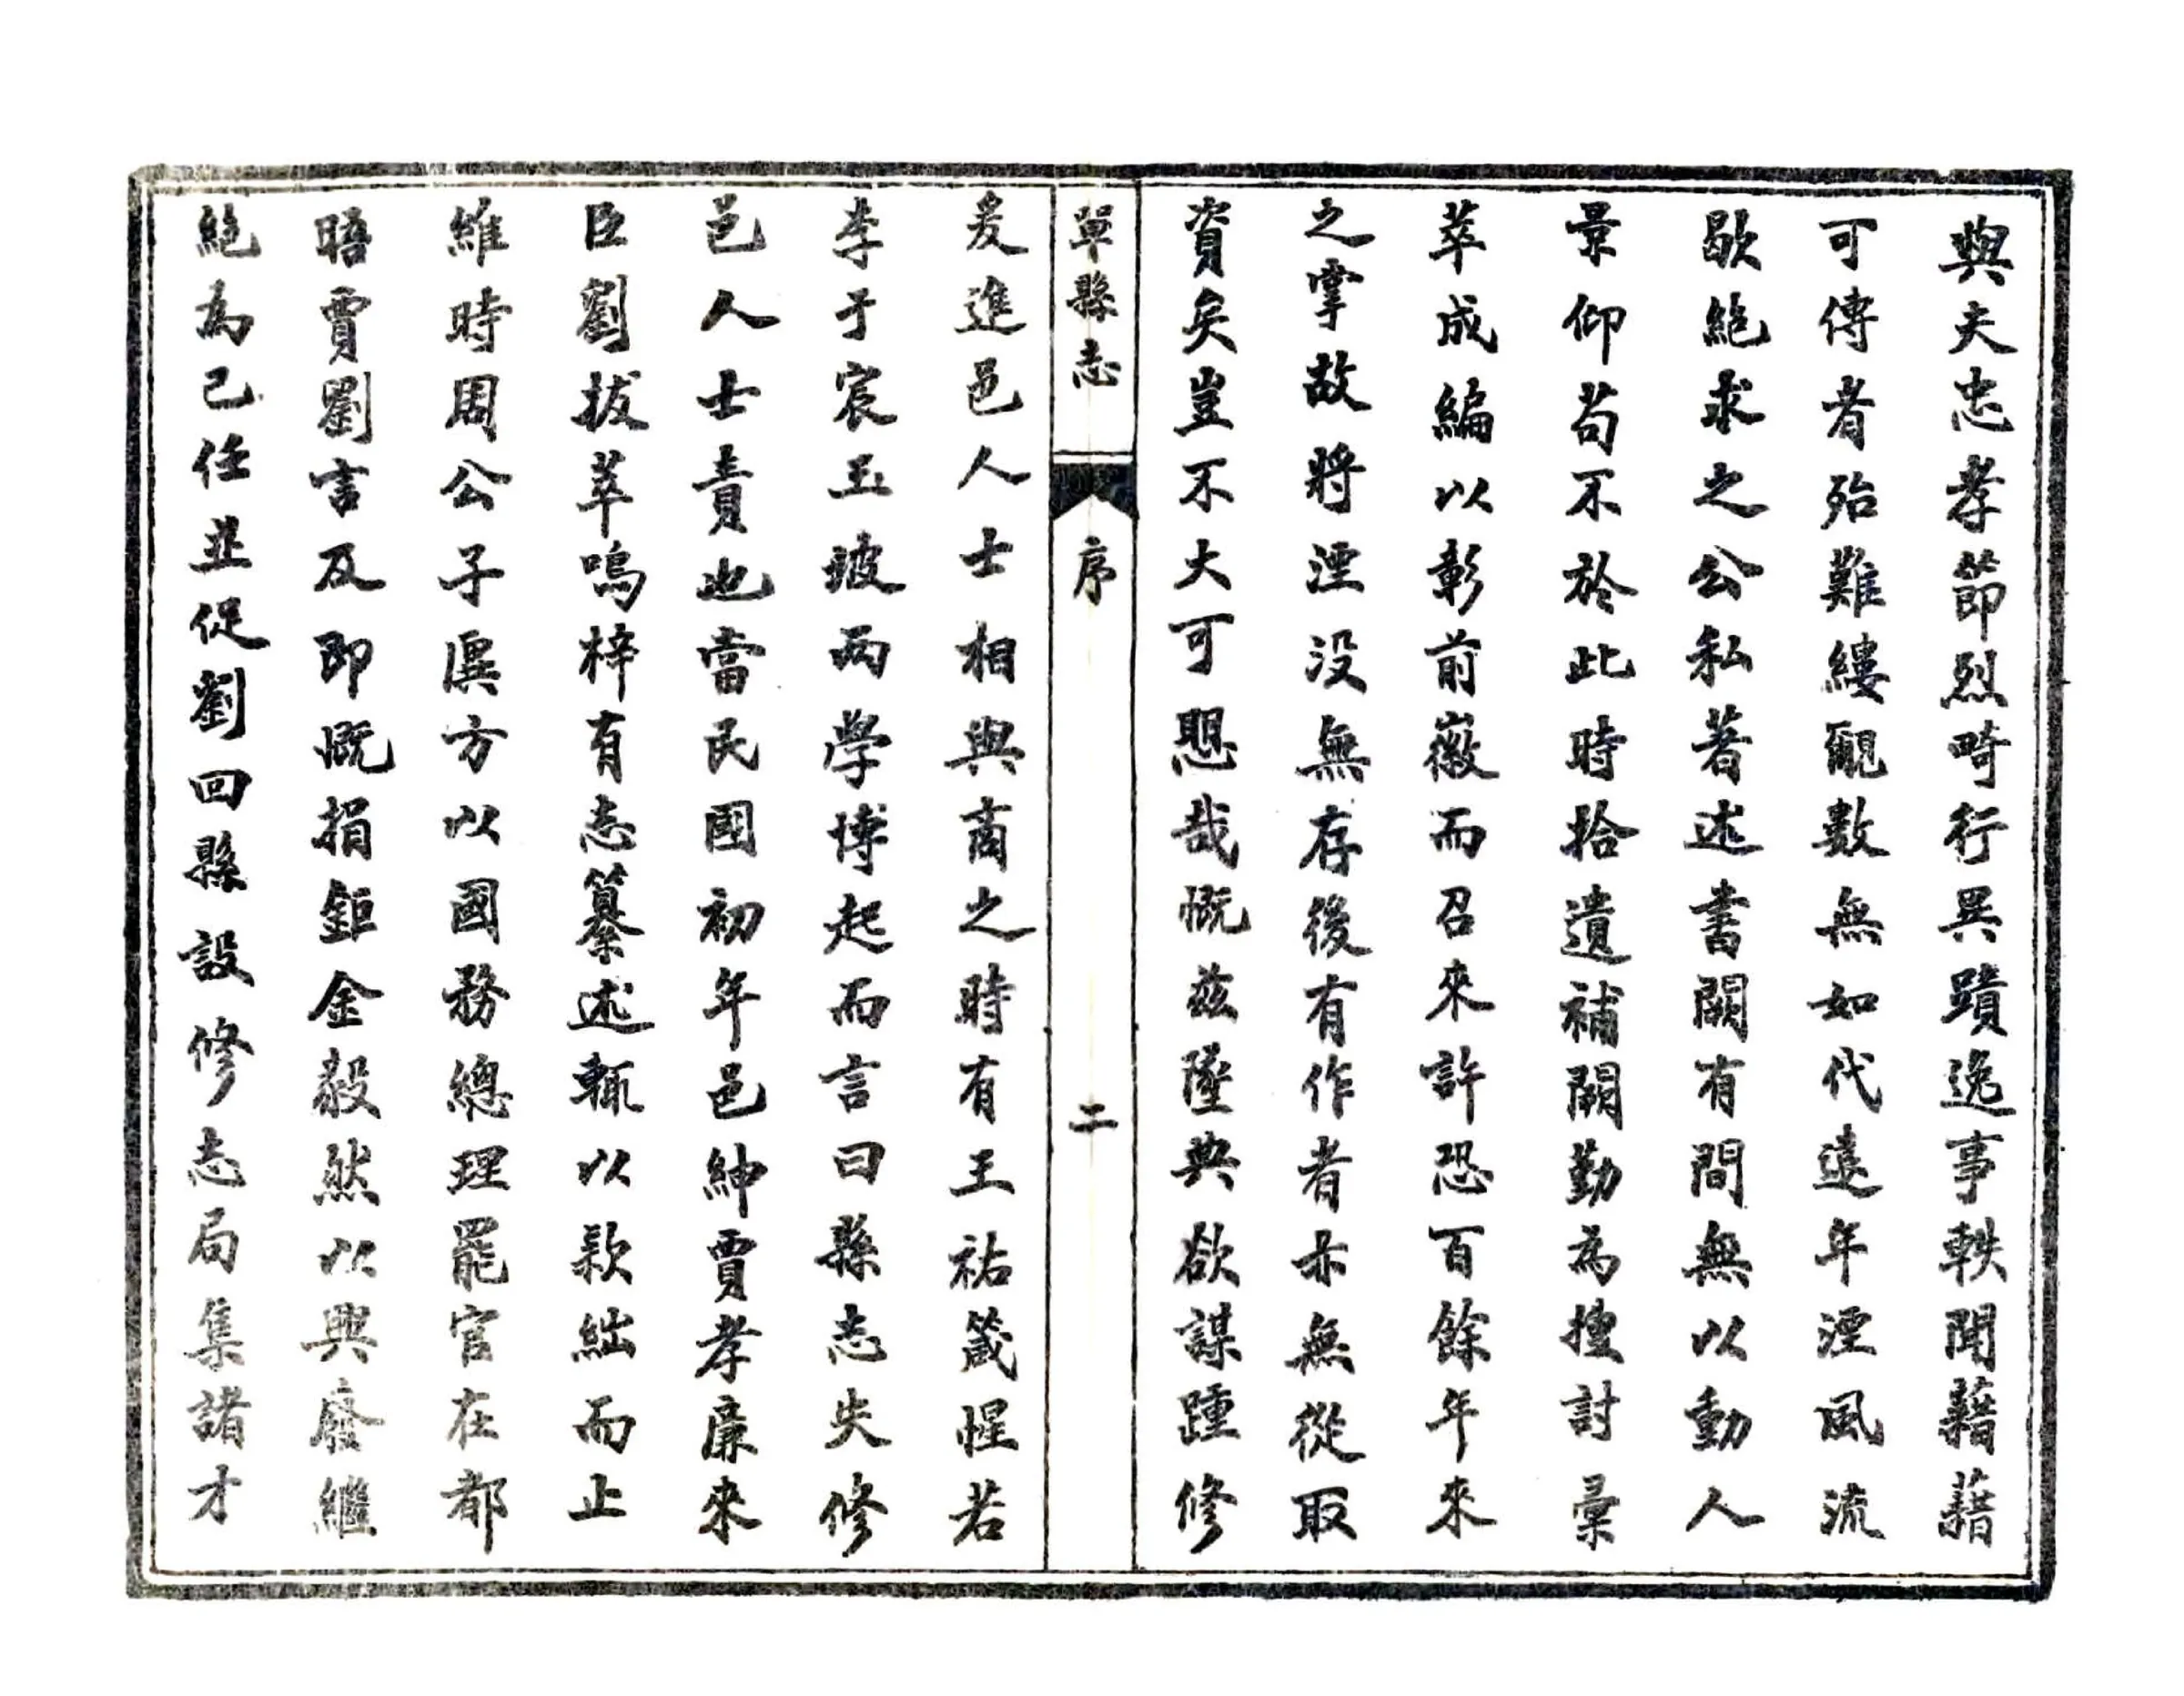 與夫忠孝節烈畸行異蹟逸事軼聞藉藉
可傳者殆難縷覼數無如代遠年湮風流
歇絕求之公私著述書闕有間無以動人
景仰苟不於此時拾遺補闕勤為搜討彙
萃成編以彰前徽而召來許恐百餘年來
之掌故將湮没無存後有作者亦無從取
資矣豈不大可愳哉慨茲墜典欲謀踵修
單縣志
序
二
爰進邑人士相與商之時有王祐箴惺若
李于宸玉坡兩學博起而言曰縣志失修
邑人士責也當民國初年邑紳賈孝廉來
臣劉拔萃鳴梓有志纂述輒以款絀而止
維時周公子廙方以國務總理罷官在都
晤賈劉言及即慨捐鉅金毅然以興廢繼
絕為己任並促劉回縣設修志局集諸才